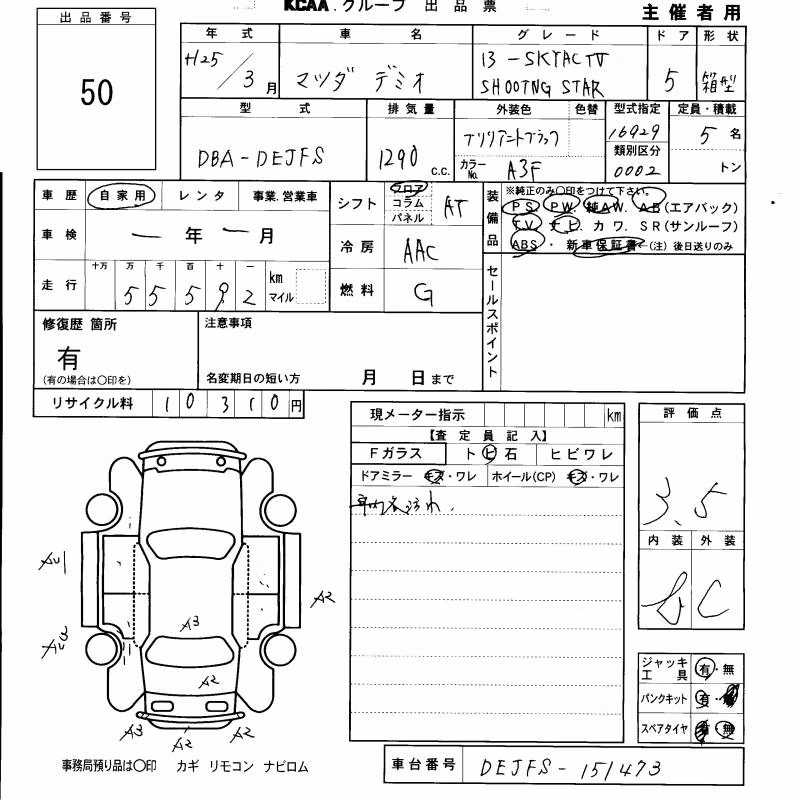 KCAA グループ 出品票
主催者用
出品番号
50
年式 車名 グレード ドア 形状
H25/3月 マツダ デミオ 13-SKYACTIV SHOOTNG STAR 5 箱型
型式 排気量 外装色 色替 型式指定 定員・積載
DBA-DEJFS 1290 c.c. ブリリアントブラック 16929 5名
カラーNo. A3F 類別区分 0002 トン
車歴 自家用 レンタ 事業.営業車
車検 ー年ー月
走行 十万 万 千 百 十 一 km マイル
5 5 5 9 2
シフト フロア コラム パネル AT
冷房 AAC
燃料 G
装備品 ※純正のみ〇印をつけて下さい。
PS. PW. 純AW. AB(エアバック)
TV. ナビ. カワ. SR(サンルーフ)
ABS・新車保証書(注)後日送りのみ
セールスポイント
修復歴 箇所
有
(有の場合は〇印を)
注意事項
名変期日の短い方 月 日まで
リサイクル料 10310円
現メーター指示 km
【査定員記入】
Fガラス トビ石 ヒビワレ
ドアミラー キズ・ワレ ホイール(CP) キズ・ワレ
車内各汚れ.
評価点
3.5
内装 外装
b C
A2
A3
A2
A3
A2
A2
ジャッキ工具 有・無
パンクキット 有・無
スペアタイヤ 有・無
事務局預り品は〇印 カギ リモコン ナビロム
車台番号 DEJFS-151473